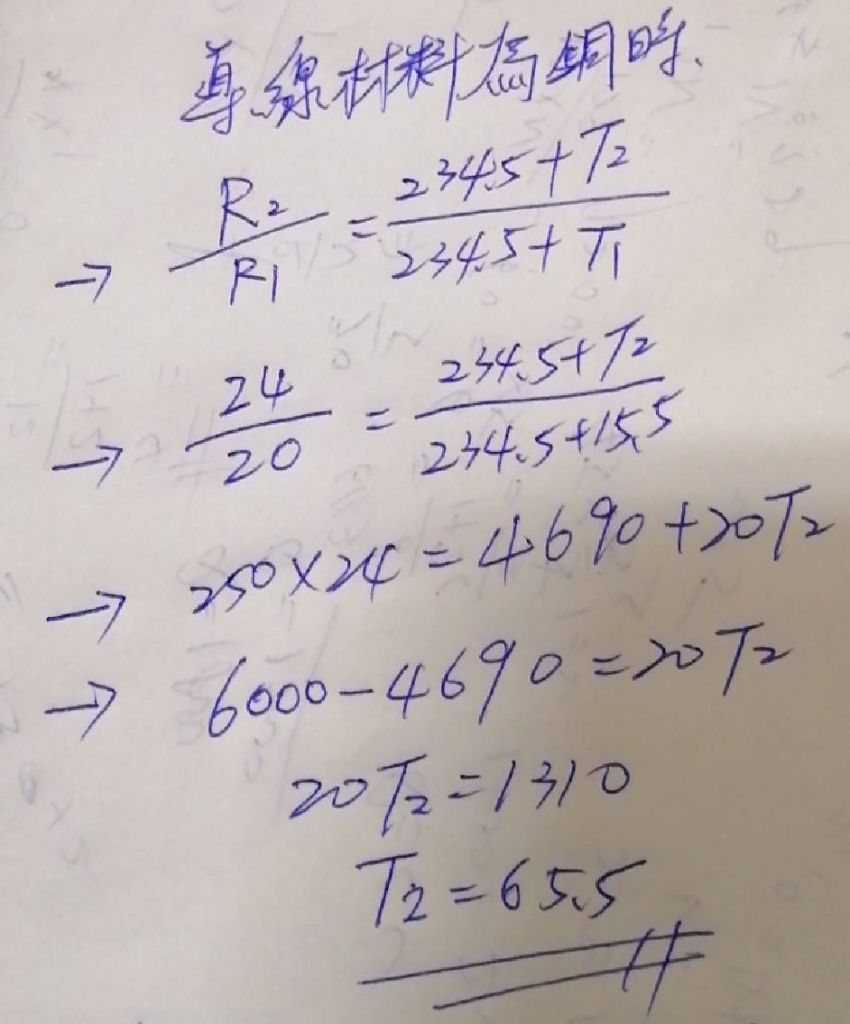 導線材料為銅時、
→ R2/R1 = 234.5+T2/234.5+T1
→ 24/20 = 234.5+T2/234.5+15.5
→ 250×24 = 4690+20T2
→ 6000-4690=20T2
20T2=1310
T2=65.5